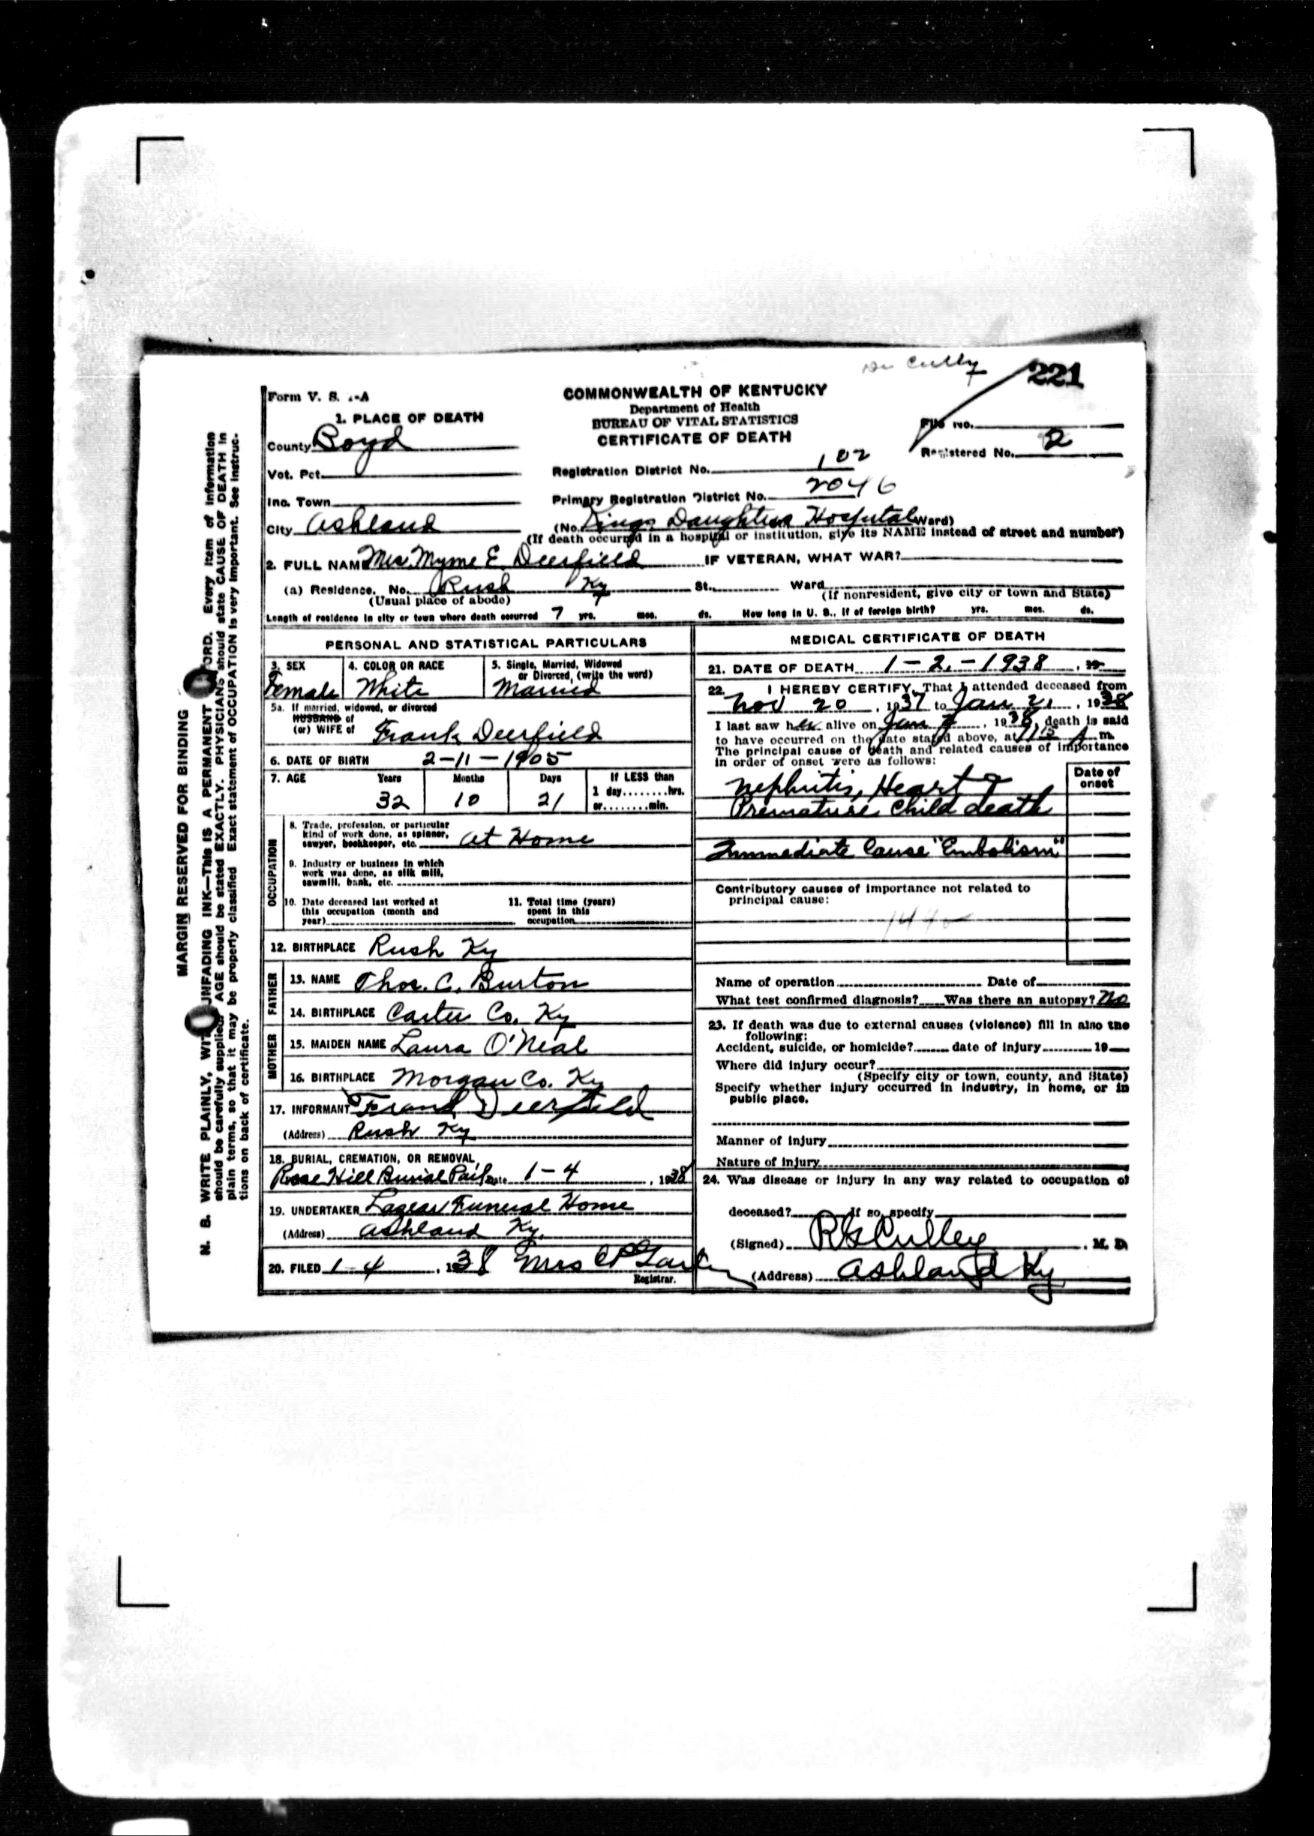 Dr Cully
221
Form V. S. 1-A
COMMONWEALTH OF KENTUCKY
Department of Health
BUREAU OF VITAL STATISTICS
CERTIFICATE OF DEATH
File No.
Registered No. 2
1. PLACE OF DEATH
County Boyd
Vot. Pct.
Registration District No. 102
Inc. Town
Primary Registration District No. 2046
City Ashland
(No. Kings Daughters Hospital Ward)
(If death occurred in a hospital or institution, give its NAME instead of street and number)
2. FULL NAME Mrs. Myme E. Deerfield IF VETERAN, WHAT WAR?
(a) Residence. No. Rush Ky St., Ward
(Usual place of abode) (If nonresident, give city or town and State)
Length of residence in city or town where death occurred 7 yrs. mos. ds. How long in U. S., if of foreign birth? yrs. mos. ds.
PERSONAL AND STATISTICAL PARTICULARS
3. SEX 4. COLOR OR RACE 5. Single, Married, Widowed
or Divorced, (write the word)
Female White Married
5a. If married, widowed, or divorced
HUSBAND of
(or) WIFE of Frank Deerfield
6. DATE OF BIRTH 2-11-1905
7. AGE Years Months Days If LESS than
1 day........hrs.
32 10 21 or........min.
OCCUPATION
8. Trade, profession, or particular
kind of work done, as spinner,
sawyer, bookkeeper, etc. At Home
9. Industry or business in which
work was done, as silk mill,
sawmill, bank, etc.
10. Date deceased last worked at
this occupation (month and
year)
11. Total time (years)
spent in this
occupation
12. BIRTHPLACE Rush Ky
FATHER
13. NAME Thos. C. Burton
14. BIRTHPLACE Carter Co. Ky
MOTHER
15. MAIDEN NAME Laura O'Neal
16. BIRTHPLACE Morgan Co. Ky
17. INFORMANT Frank Deerfield
(Address) Rush Ky
18. BURIAL, CREMATION, OR REMOVAL
Rose Hill Burial Park Date 1-4, 1938
19. UNDERTAKER Lazear Funeral Home
(Address) Ashland Ky.
20. FILED 1-4, 1938 Mrs C P
Registrar.
MEDICAL CERTIFICATE OF DEATH
21. DATE OF DEATH 1-2-1938, 19
22. I HEREBY CERTIFY, That I attended deceased from
Nov 20, 1937 to Jan 2, 1938
I last saw her alive on Jan 2, 1938, death is said
to have occurred on the date stated above, at m.
The principal cause of death and related causes of importance
in order of onset were as follows:
Date of
onset
Nephritis, Heart &
Premature Child death
Immediate Cause "Embolism"
Contributory causes of importance not related to
principal cause:
Name of operation Date of
What test confirmed diagnosis? Was there an autopsy? No
23. If death was due to external causes (violence) fill in also the
following:
Accident, suicide, or homicide? date of injury 19
Where did injury occur?
(Specify city or town, county, and State)
Specify whether injury occurred in industry, in home, or in
public place.
Manner of injury
Nature of injury
24. Was disease or injury in any way related to occupation of
deceased? If so, specify
(Signed) R G Culley, M. D.
(Address) Ashland Ky
MARGIN RESERVED FOR BINDING
N. B. WRITE PLAINLY, WITH UNFADING INK—THIS IS A PERMANENT RECORD. Every item of information
should be carefully supplied. AGE should be stated EXACTLY. PHYSICIANS should state CAUSE OF DEATH in
plain terms, so that it may be properly classified. Exact statement of OCCUPATION is very important. See instruc-
tions on back of certificate.